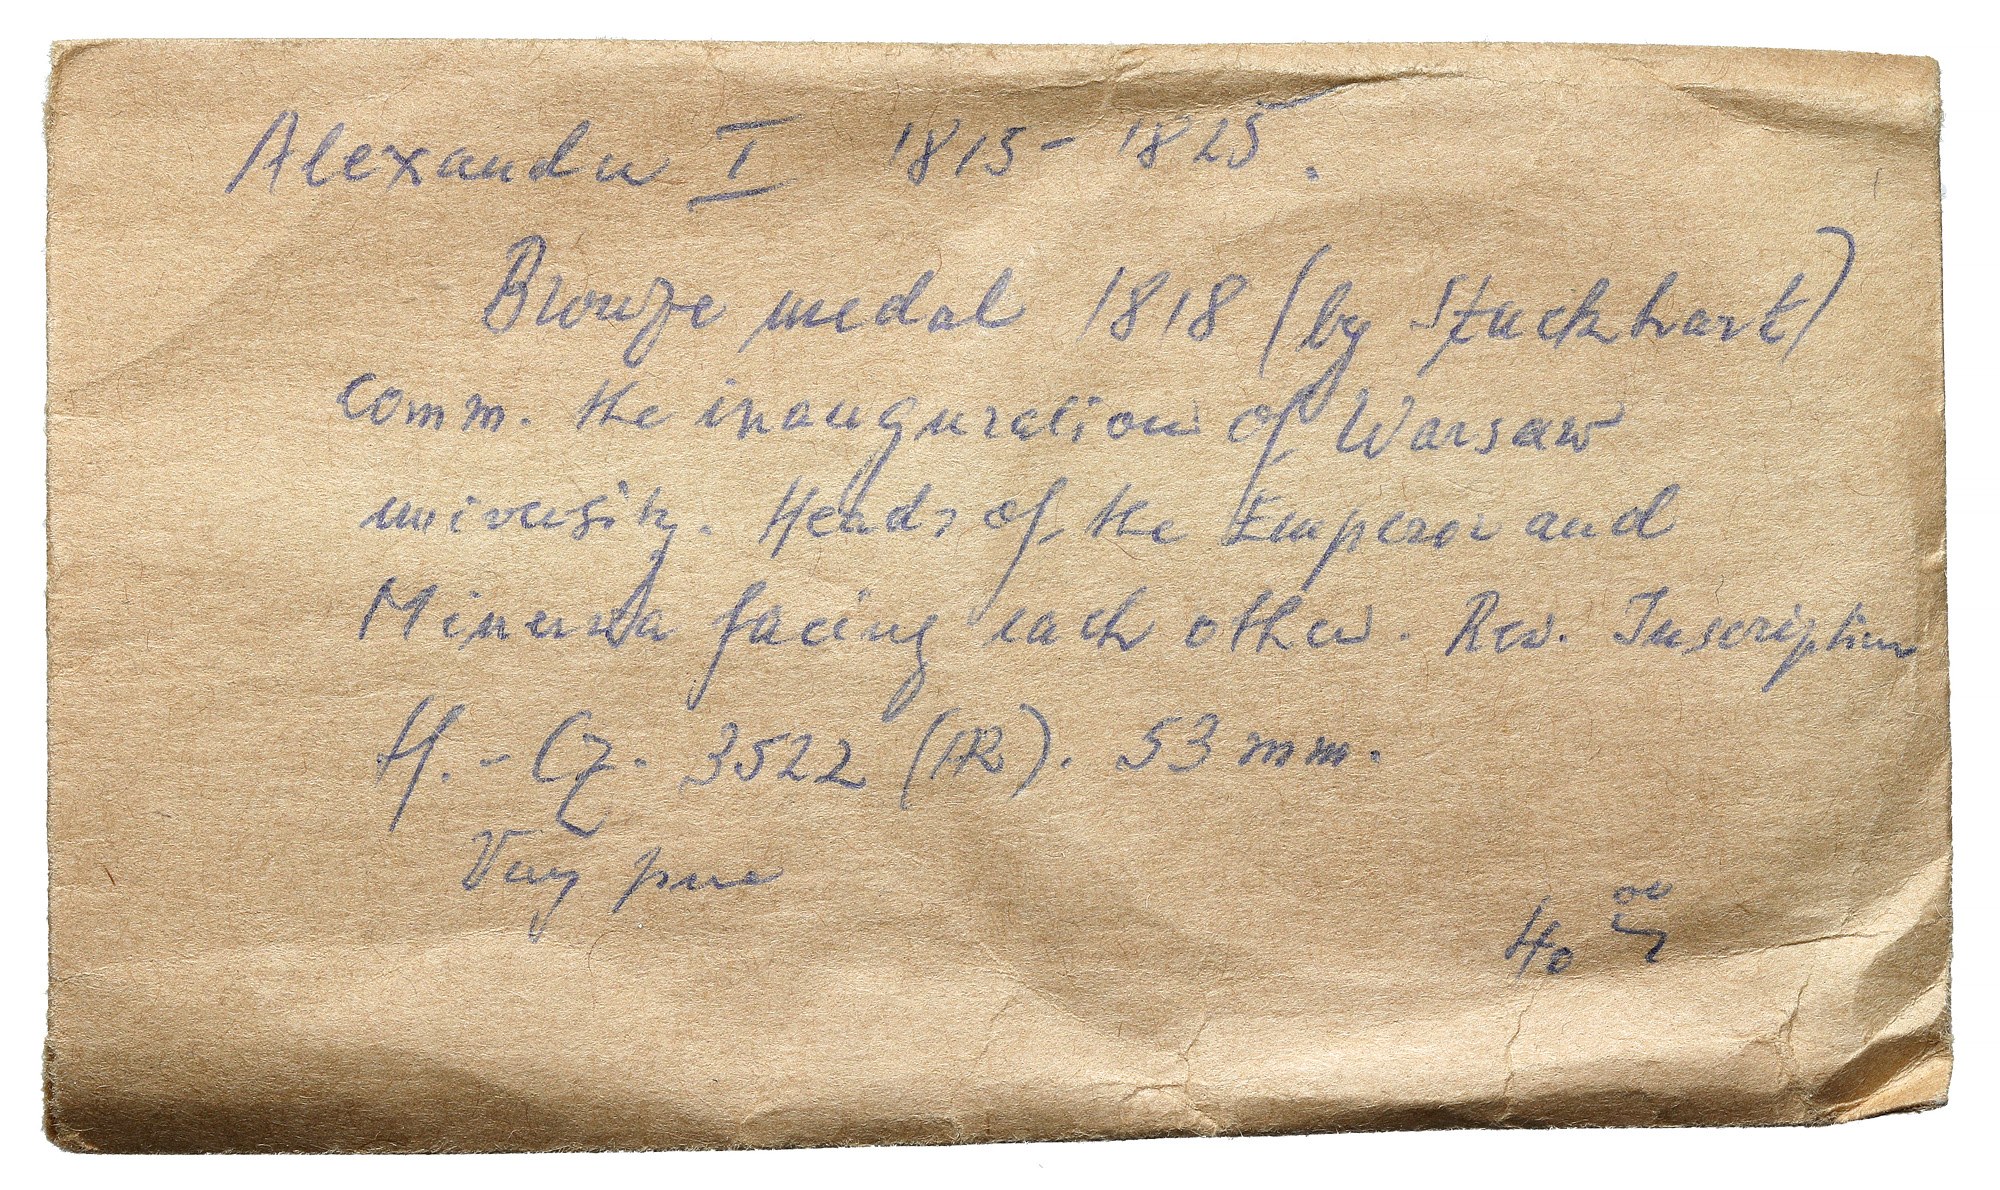 Alexander I 1815-1825.
Bronze medal 1818 (by Stuckhart)
comm. the inauguration of Warsaw
university. Heads of the Emperor and
Minerva facing each other. Rev. Inscription
H.-Cz. 3522 (IR). 53 mm.
Very fine
40 00